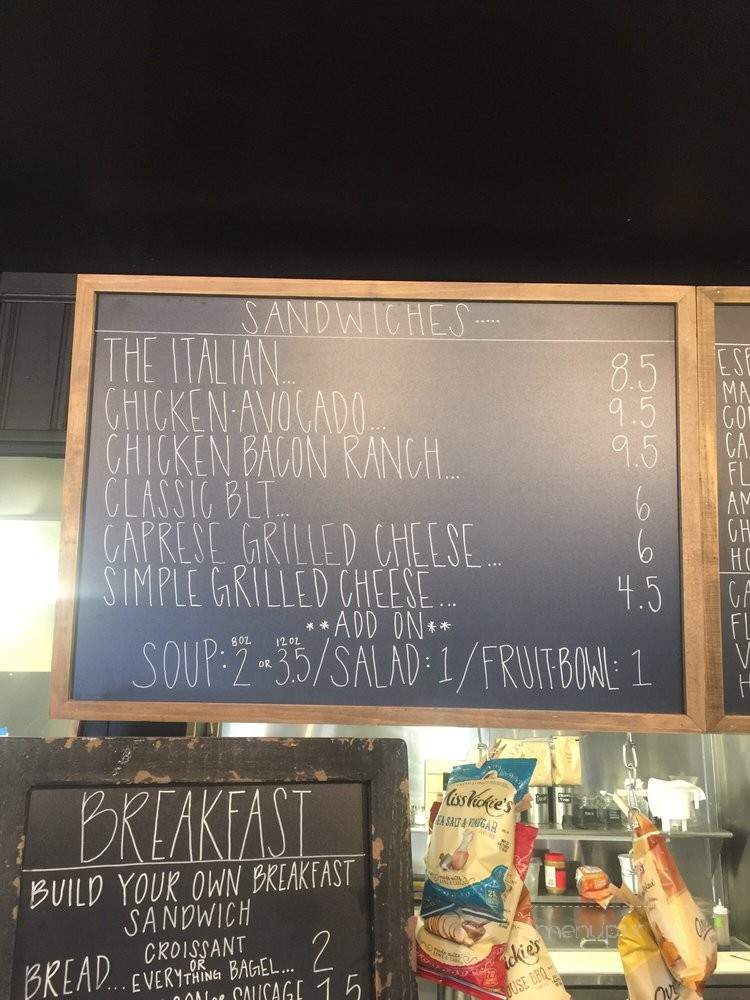 SANDWICHES.....
THE ITALIAN... 8.5
CHICKEN-AVOCADO... 9.5
CHICKEN BACON RANCH... 9.5
CLASSIC BLT... 6
CAPRESE GRILLED CHEESE... 6
SIMPLE GRILLED CHEESE... 4.5
**ADD ON**
8OZ 12OZ
SOUP: 2 OR 3.5/SALAD: 1/FRUIT-BOWL: 1
BREAKFAST
BUILD YOUR OWN BREAKFAST
SANDWICH
CROISSANT
OR
BREAD... EVERYTHING BAGEL... 2
OR SAUSAGE 1.5
ESP
MA
CO
CA
FL
AM
CH
HO
CA
FL
V
H
Miss Vickie's
SEA SALT & VINEGAR
ickie's
BBQ
menupix